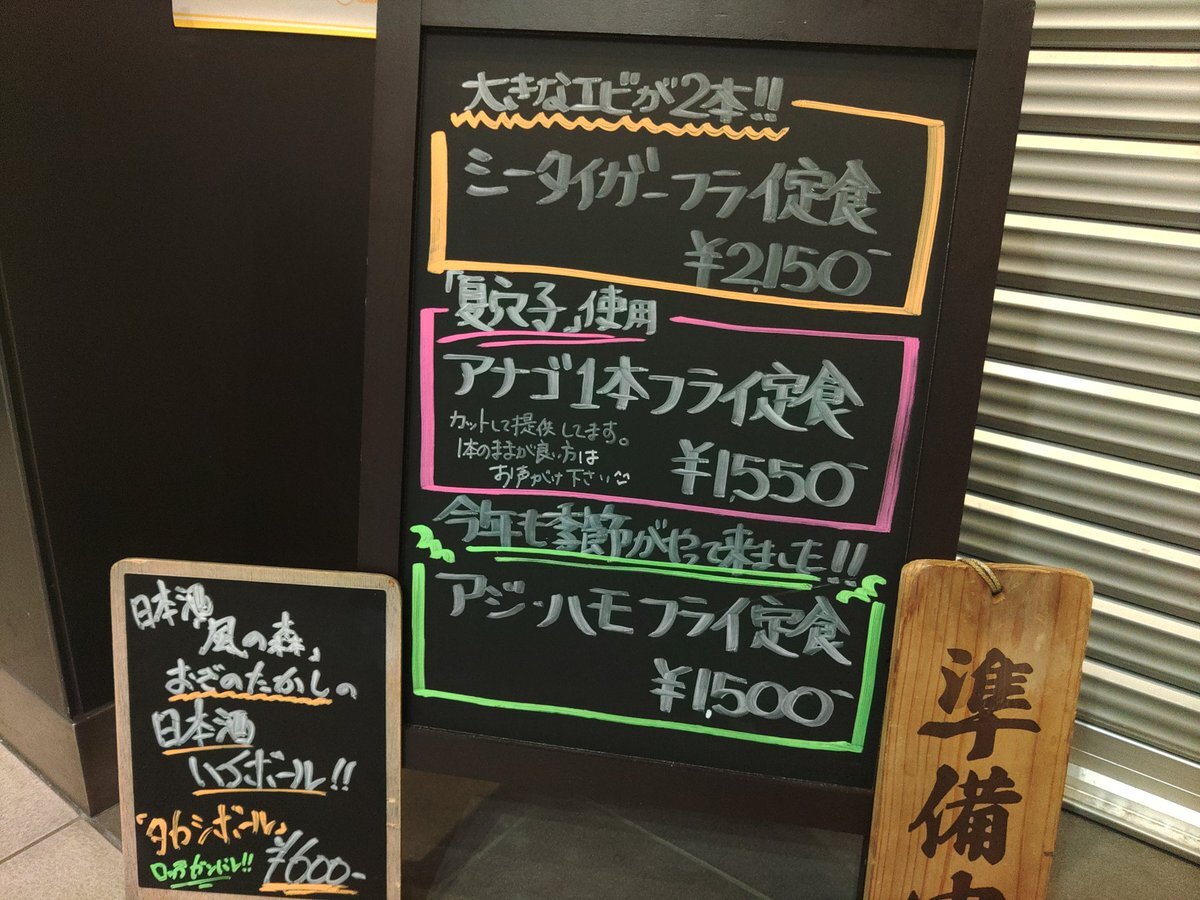 大きなエビが2本!!
シータイガーフライ定食
¥2,150-
「夏穴子」使用
アナゴ1本フライ定食
カットして提供してます。
1本のままが良い方は
お声がけ下さい
¥1,550-
今年も季節がやって来ました!!
アジ・ハモフライ定食
¥1,500-
日本酒
「風の森」
おざのたかしの
日本酒
ハイボール!!
「タカシボール」
¥600-
準備